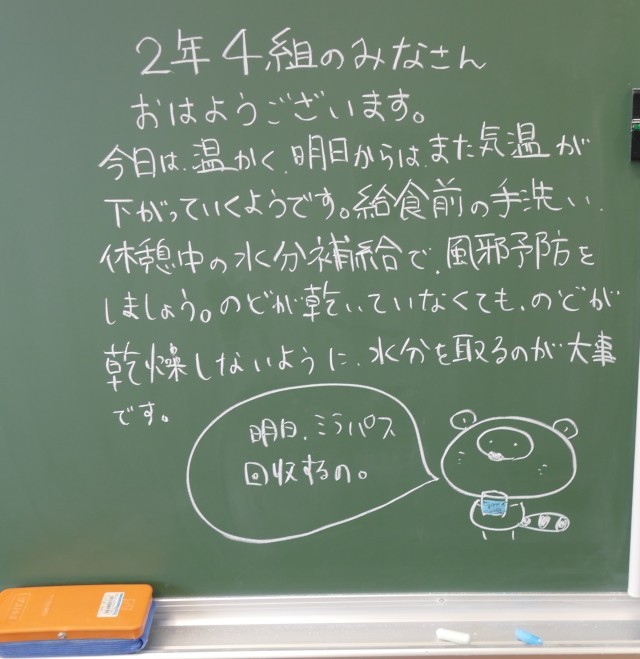 2年4組のみなさん
おはようございます。
今日は、温かく、明日からは、また気温が
下がっていくようです。給食前の手洗い、
休憩中の水分補給で、風邪予防を
しましょう。のどが乾いていなくても、のどが
乾燥しないように、水分を取るのが大事
です。
明日、ミライパス
回収するの。